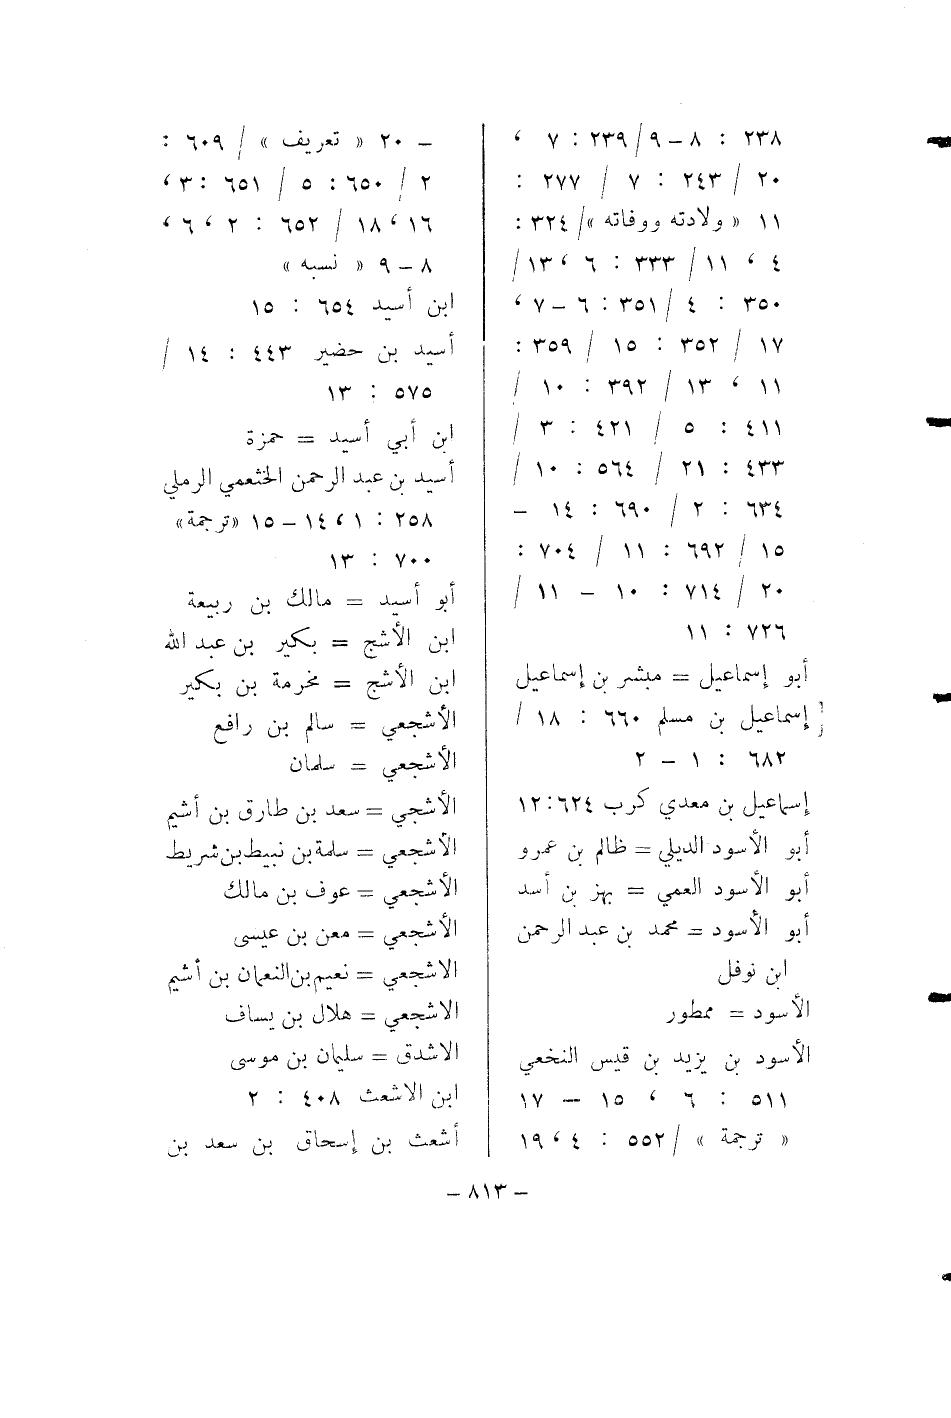 ٢٣٨ : ٨ – ٩ / ٢٣٩ : ٧ ،
٢٠ / ٢٤٣ : ٧ / ٢٧٧ :
١١ « ولادته ووفاته » / ٣٢٤ :
٤ ، ١١ / ٣٣٣ : ٦ ، ١٣ /
٣٥٠ : ٤ / ٣٥١ : ٦ – ٧ ،
١٧ / ٣٥٢ : ١٥ / ٣٥٩ :
١١ ، ١٣ / ٣٩٢ : ١٠ /
٤١١ : ٥ / ٤٢١ : ٣ /
٤٣٣ : ٢١ / ٥٦٤ : ١٠ /
٦٣٤ : ٢ / ٦٩٠ : ١٤ –
١٥ / ٦٩٢ : ١١ / ٧٠٤ :
٢٠ / ٧١٤ : ١٠ – ١١ /
٧٢٦ : ١١
أبو إسماعيل = مبشر بن إسماعيل
إسماعيل بن مسلم ٦٦٠ : ١٨ /
٦٨٢ : ١ – ٢
إسماعيل بن معدي كرب ٦٢٤ : ١٢
أبو الأسود الديلي = ظالم بن عمرو
أبو الأسود العمي = بهز بن أسد
أبو الأسود = محمد بن عبد الرحمن
ابن نوفل
الأسود = ممطور
الأسود بن يزيد بن قيس النخعي
٥١١ : ٦ ، ١٥ – ١٧
« ترجمة » / ٥٥٢ : ٤ ، ١٩
– ٢٠ « تعريف » / ٦٠٩ :
٢ / ٦٥٠ : ٥ / ٦٥١ : ٣ ،
١٦ ، ١٨ / ٦٥٢ : ٢ ، ٦ ،
٨ – ٩ « نسبه »
ابن أسيد ٦٥٤ : ١٥
أسيد بن حضير ٤٤٣ : ١٤ /
٥٧٥ : ١٣
ابن أبي أسيد = حمزة
أسيد بن عبد الرحمن الخثعمي الرملي
٢٥٨ : ١ ، ١٤ – ١٥ « ترجمة »
٧٠٠ : ١٣
أبو أسيد = مالك بن ربيعة
ابن الأشج = بكير بن عبد الله
ابن الأشج = مخرمة بن بكير
الأشجعي = سالم بن رافع
الأشجعي = سلمان
الأشجي = سعد بن طارق بن أشيم
الأشجعي = سلمة بن نبيط بن شريط
الأشجعي = عوف بن مالك
الأشجعي = معن بن عيسى
الاشجعي = نعيم بن النعمان بن أشيم
الاشجعي = هلال بن يساف
الاشدق = سليمان بن موسى
ابن الاشعث ٤٠٨ : ٢
أشعث بن إسحاق بن سعد بن
– ٨١٣ –